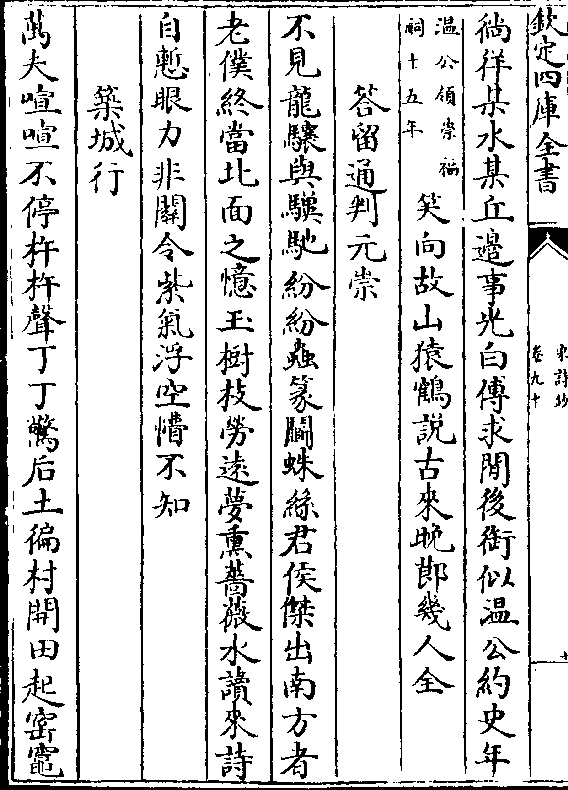 欽定四庫全書
宋詩鈔
卷九十
徜徉某水某丘邉事光白傅求閒後銜似温公約史年
温公領崇福
祠十五年
笑向故山猿鶴説古來晚節幾人全
答留通判元崇
不見龍驤與驥馳紛紛蟲篆鬭蛛絲君侯傑出南方者
老僕終當北面之憶玉樹枝勞遠夢熏薔薇水讀來詩
自慙眼力非關令紫氣浮空懵不知
築城行
萬夫喧喧不停杵杵聲丁丁驚后土徧村開田起窰竈